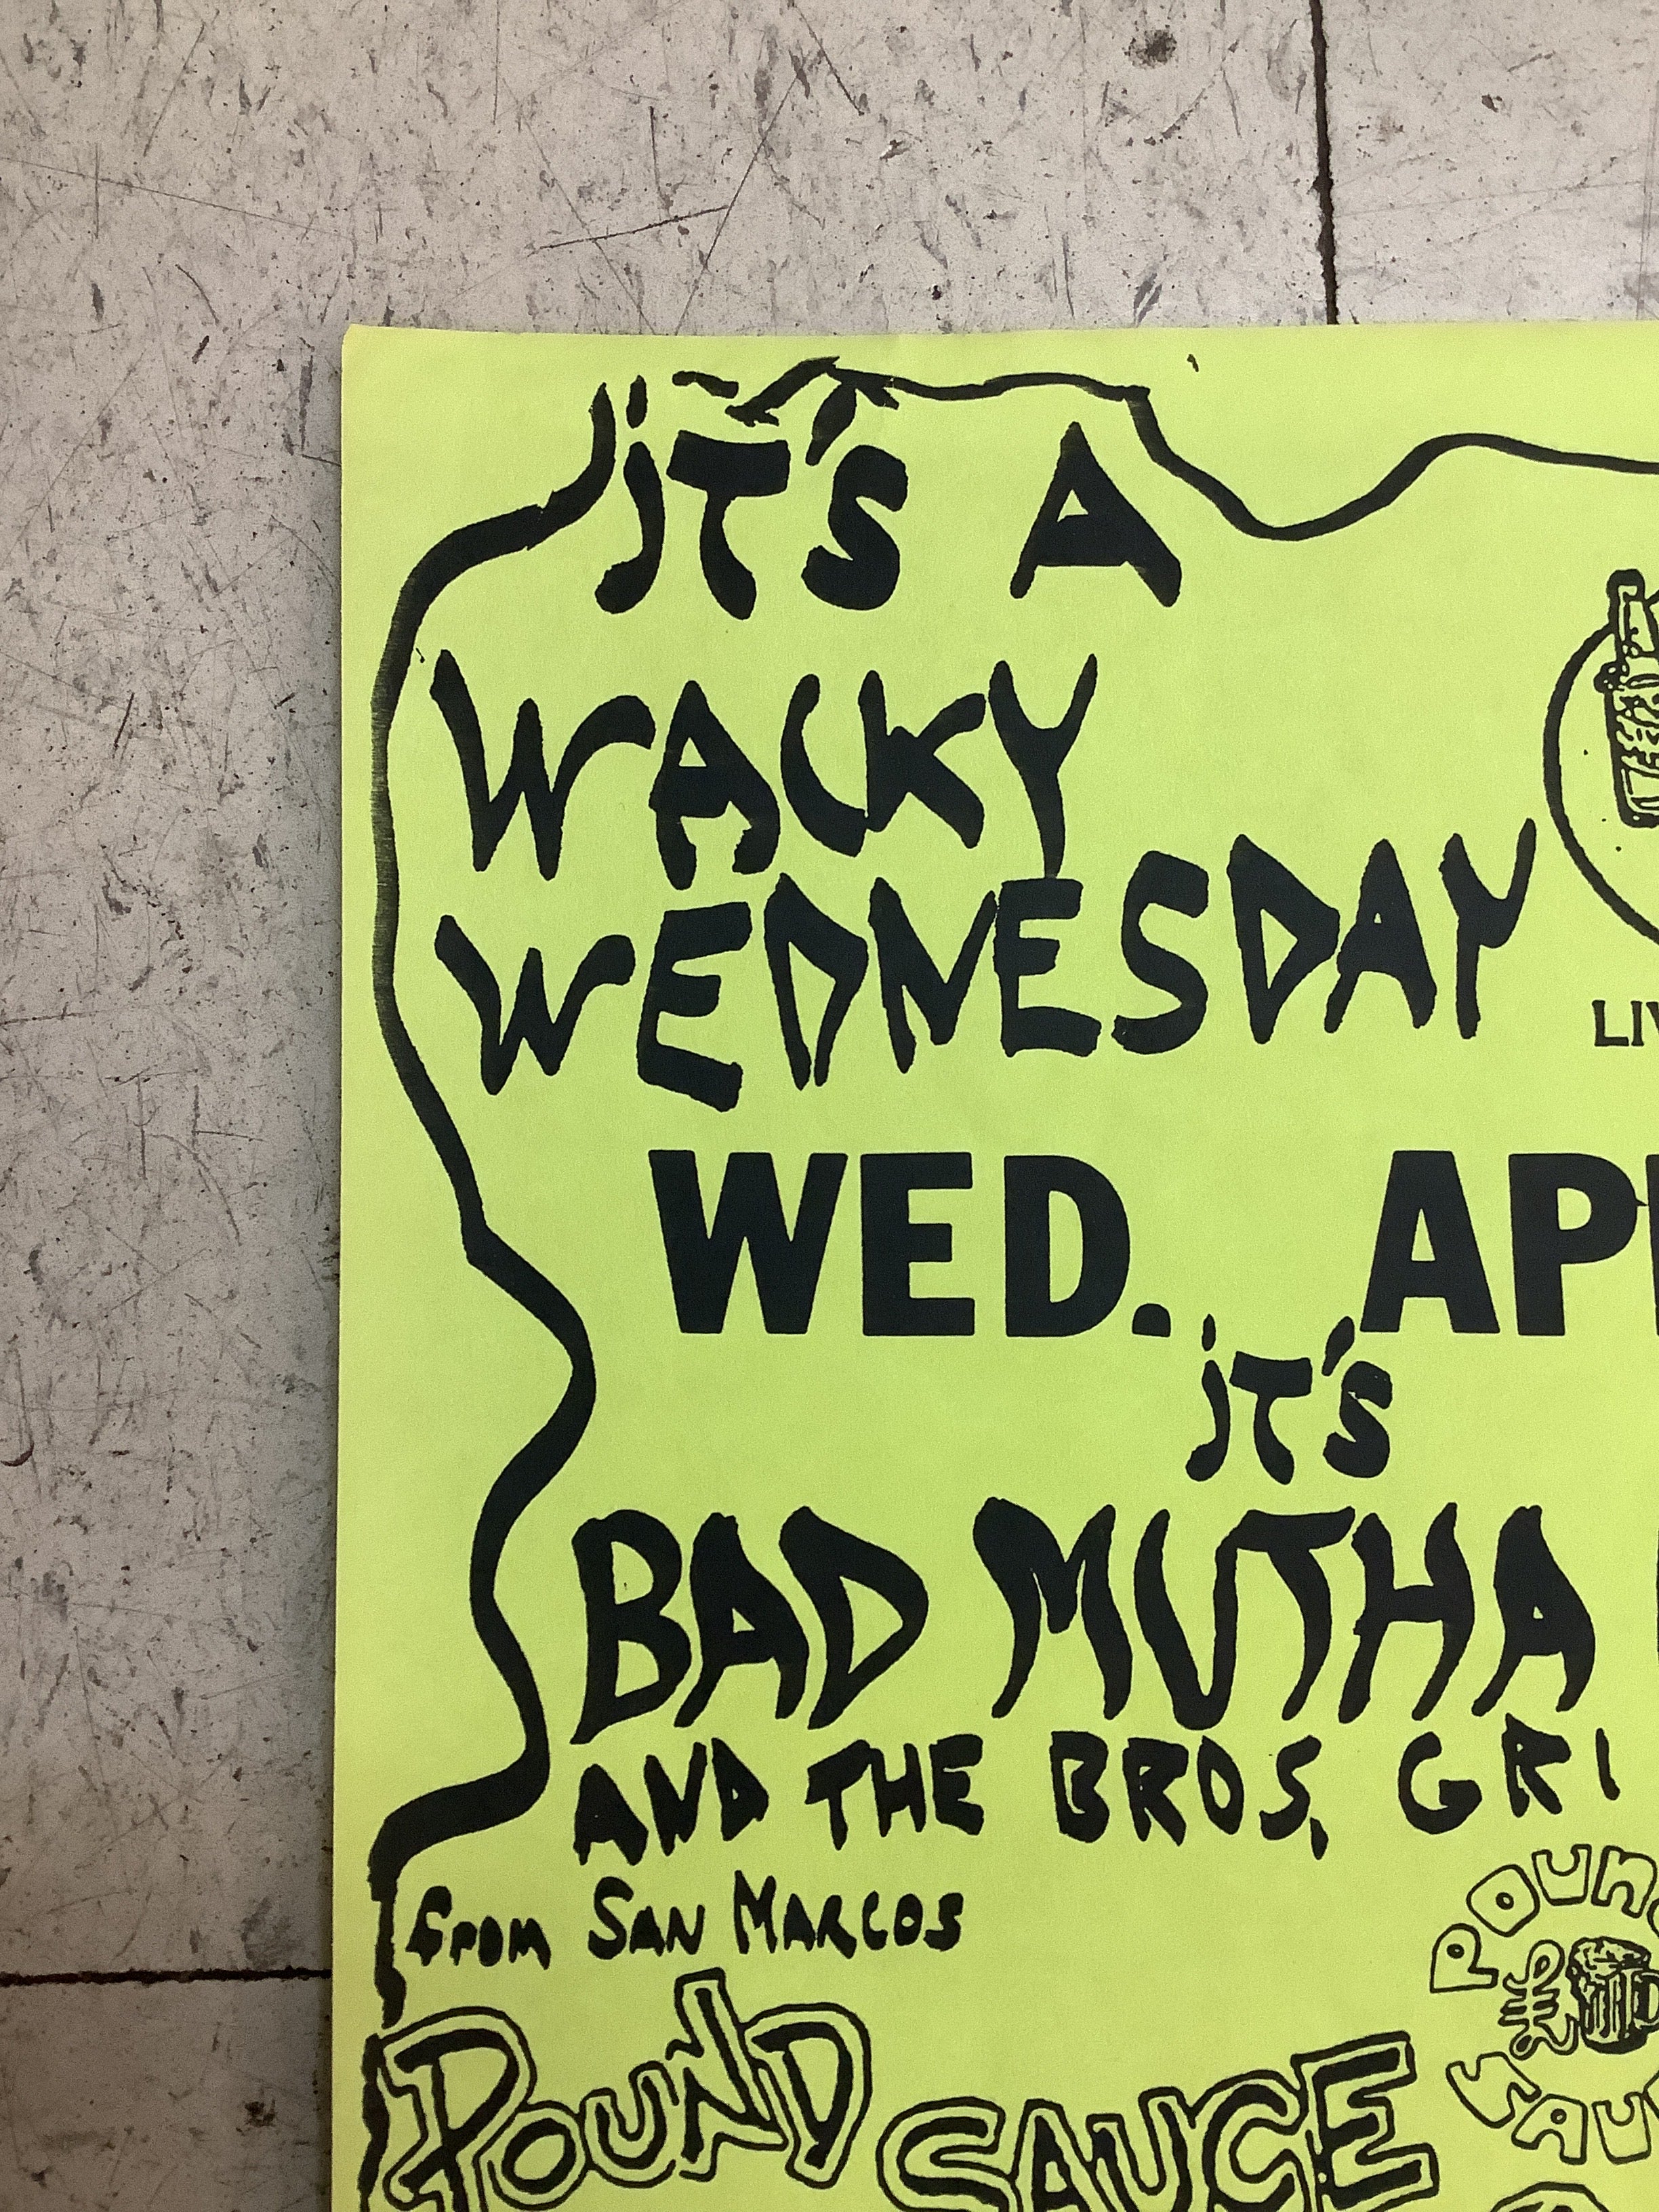 iT'S A
WACKY
WEDNESDAY
LIV
WED. AP
iT'S
BAD MUTHA
AND THE BROS. GRI
from SAN MARCOS
POUND SAUCE
POUN
SAU